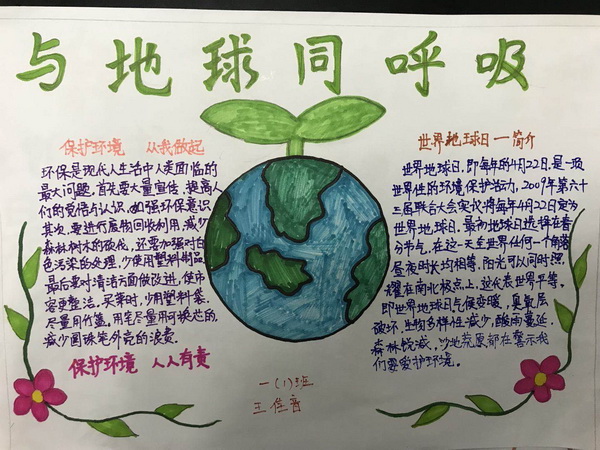 与地球同呼吸
保护环境 从我做起
环保是现代人生活中人类面临的
最大问题，首先要大量宣传，提高人
们的觉悟与认识，如强环保意识
其次，要进行废物回收利用，减少
森林树木的砍伐，还要加强对白
色污染的处理，少使用塑料制品
最后要对清洁方面做改进，使市
容更整洁。买菜时，少用塑料袋，
尽量用竹篮。用笔尽量用可换芯的
减少圆珠笔外壳的浪费。
保护环境 人人有责
世界地球日一简介
世界地球日，即每年的4月22日，是一项
世界性的环境保护活动，2009年第六十
三届联合大会决议将每年4月22日定为
世界地球日。最初地球日选择在春
分节气，在这一天全世界任何一个角落
昼夜时长均相等，阳光可以同时照
耀在南北极点上，这代表世界平等。
即世界地球日气候变暖，臭氧层
破坏，生物多样性减少，酸雨蔓延，
森林锐减，沙地荒原都在警示我
们要爱护环境。
一(1)班
王佳音